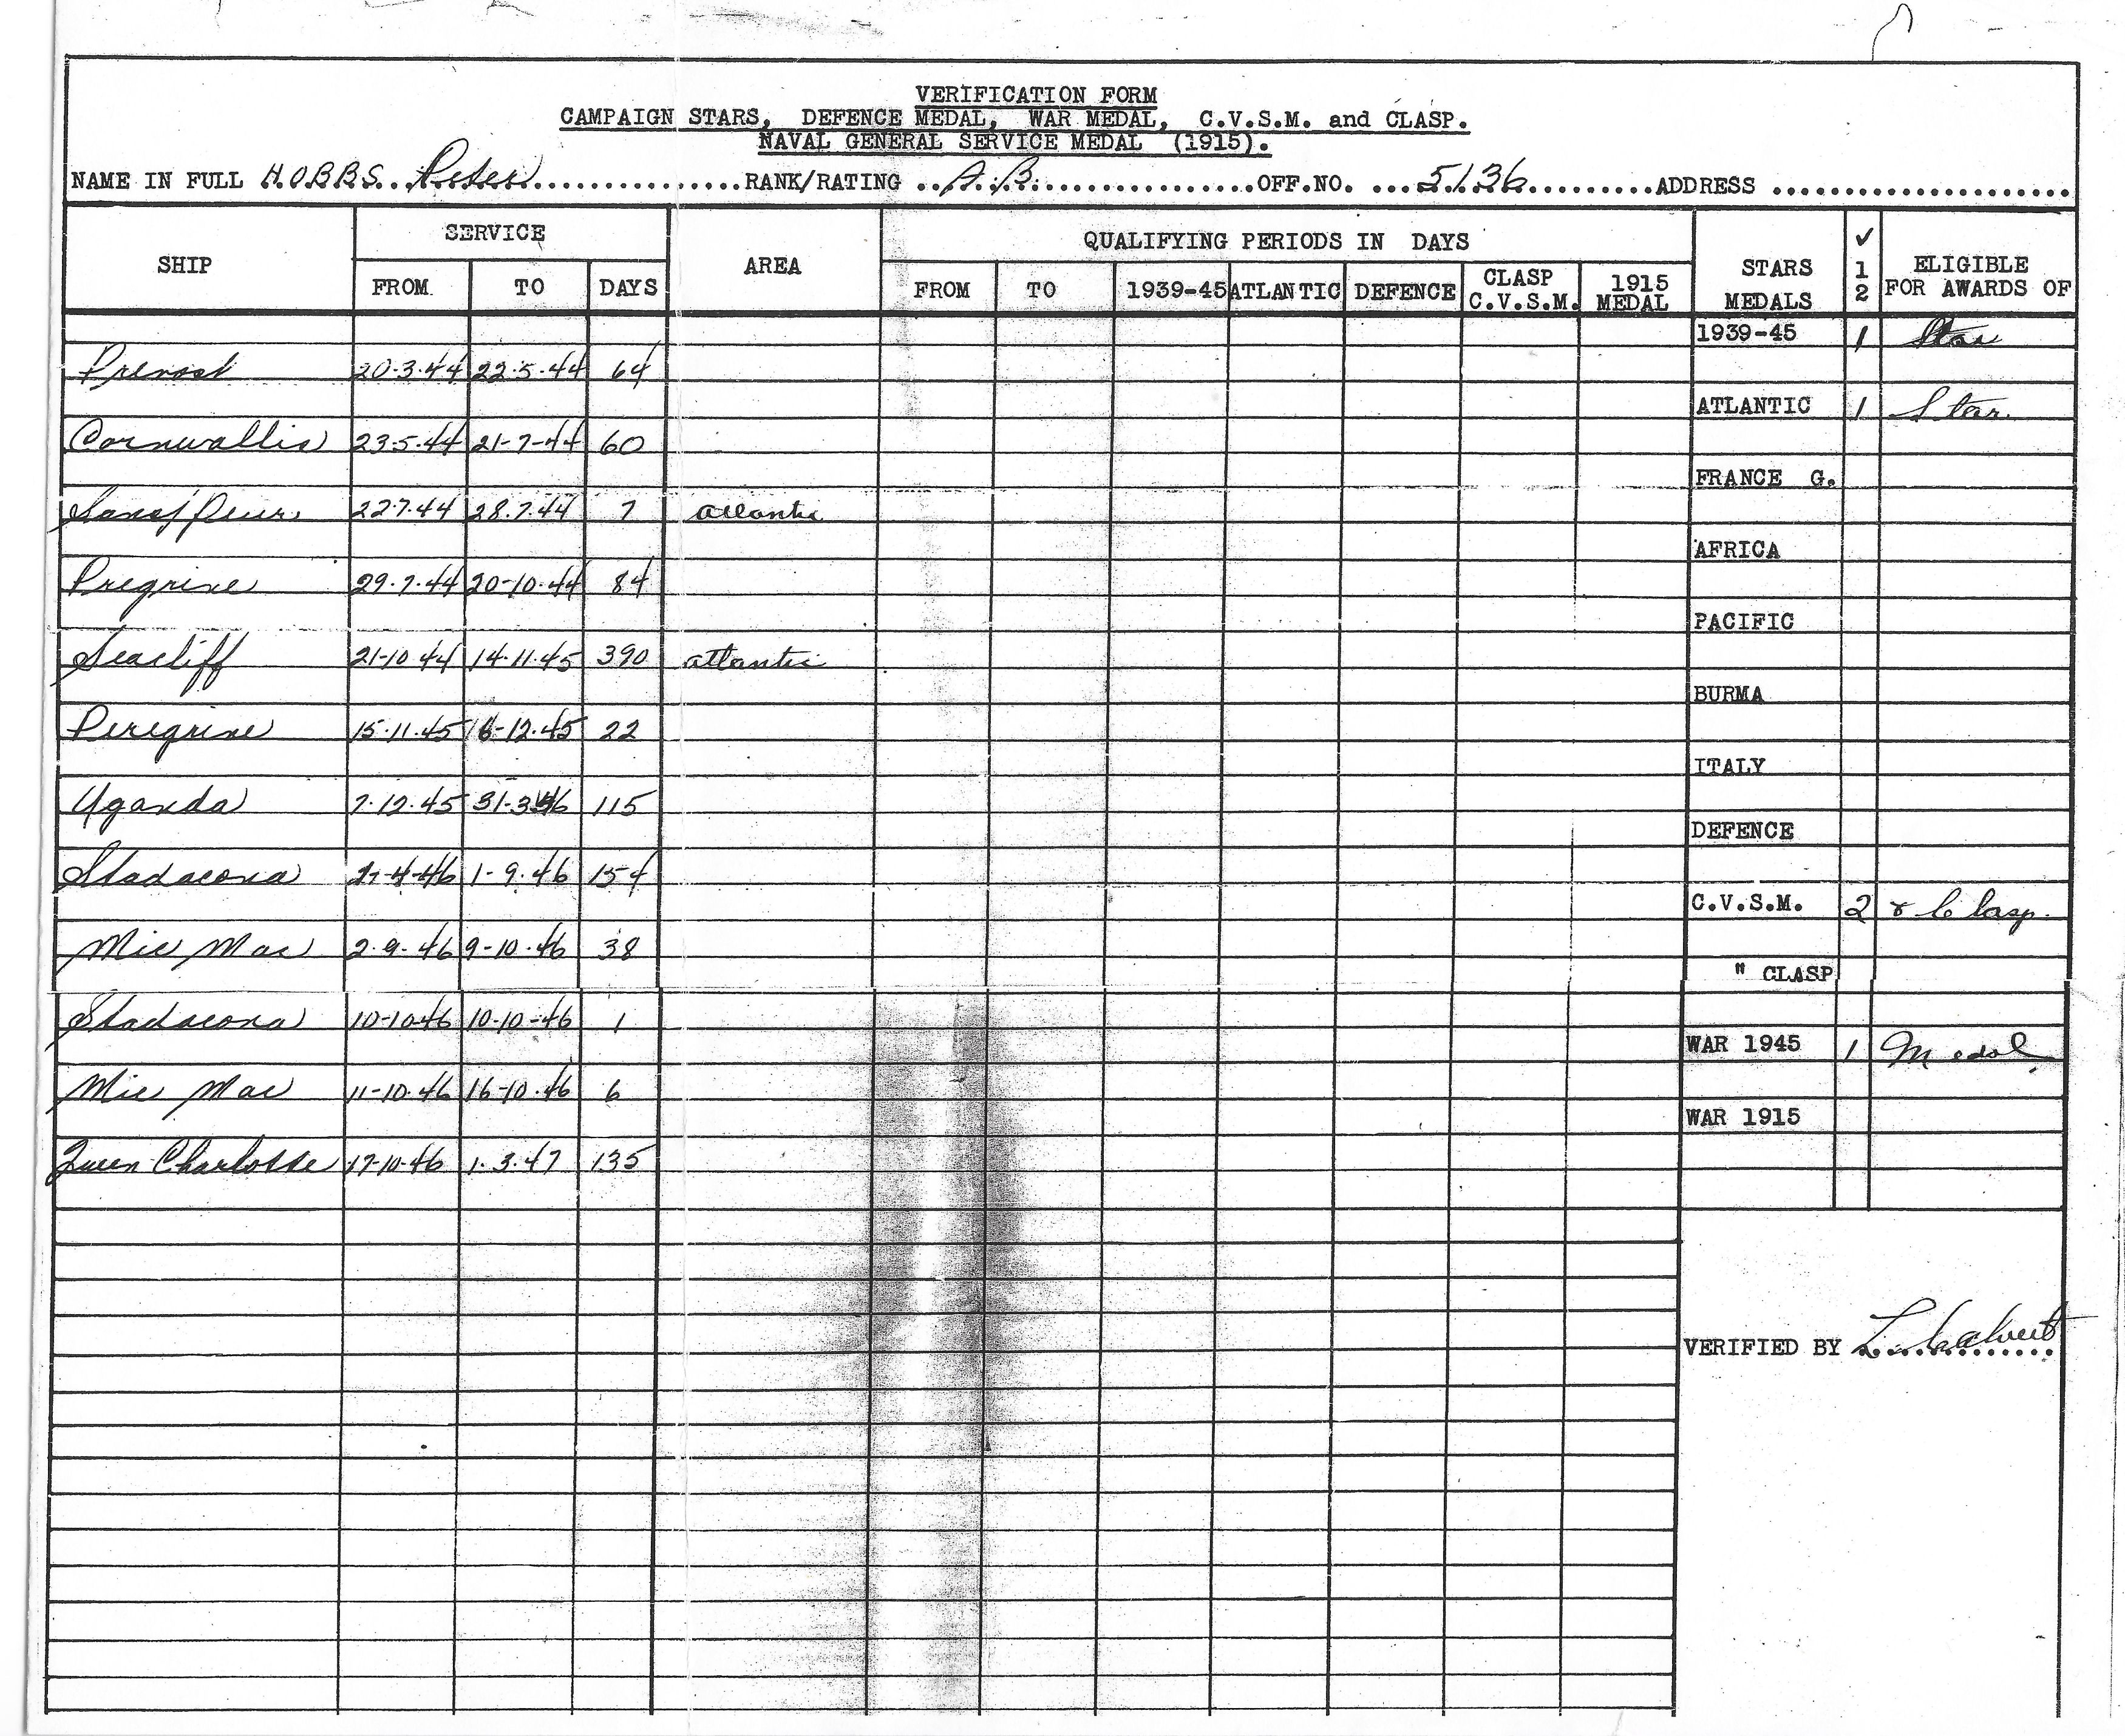 VERIFICATION FORM
CAMPAIGN STARS, DEFENCE MEDAL, WAR MEDAL, C.V.S.M. and CLASP.
NAVAL GENERAL SERVICE MEDAL (1915).
NAME IN FULL HOBBS Peter RANK/RATING A.B. OFF.NO. 5136 ADDRESS
SHIP SERVICE AREA QUALIFYING PERIODS IN DAYS STARS MEDALS ✓ 1 2 ELIGIBLE FOR AWARDS OF
FROM TO DAYS FROM TO 1939-45 ATLANTIC DEFENCE CLASP C.V.S.M. 1915 MEDAL
1939-45 1 Star
Prevost 20-3-44 22-5-44 64
ATLANTIC 1 Star.
Cornwallis 23-5-44 21-7-44 60
FRANCE G.
Sans Peur 22-7-44 28-7-44 7 atlantic
AFRICA
Pregrine 29-7-44 20-10-44 84
PACIFIC
Seacliff 21-10-44 14-11-45 390 atlantic
BURMA
Peregrine 15-11-45 6-12-45 22
ITALY
Uganda 7-12-45 31-3-46 115
DEFENCE
Stadacona 1-4-46 1-9-46 154
C.V.S.M. 2 & Clasp.
Mic Mac 2-9-46 9-10-46 38
" CLASP
Stadacona 10-10-46 10-10-46 1
WAR 1945 1 Medal
Mic Mac 11-10-46 16-10-46 6
WAR 1915
Queen Charlotte 17-10-46 1-3-47 135
VERIFIED BY L. Calvert